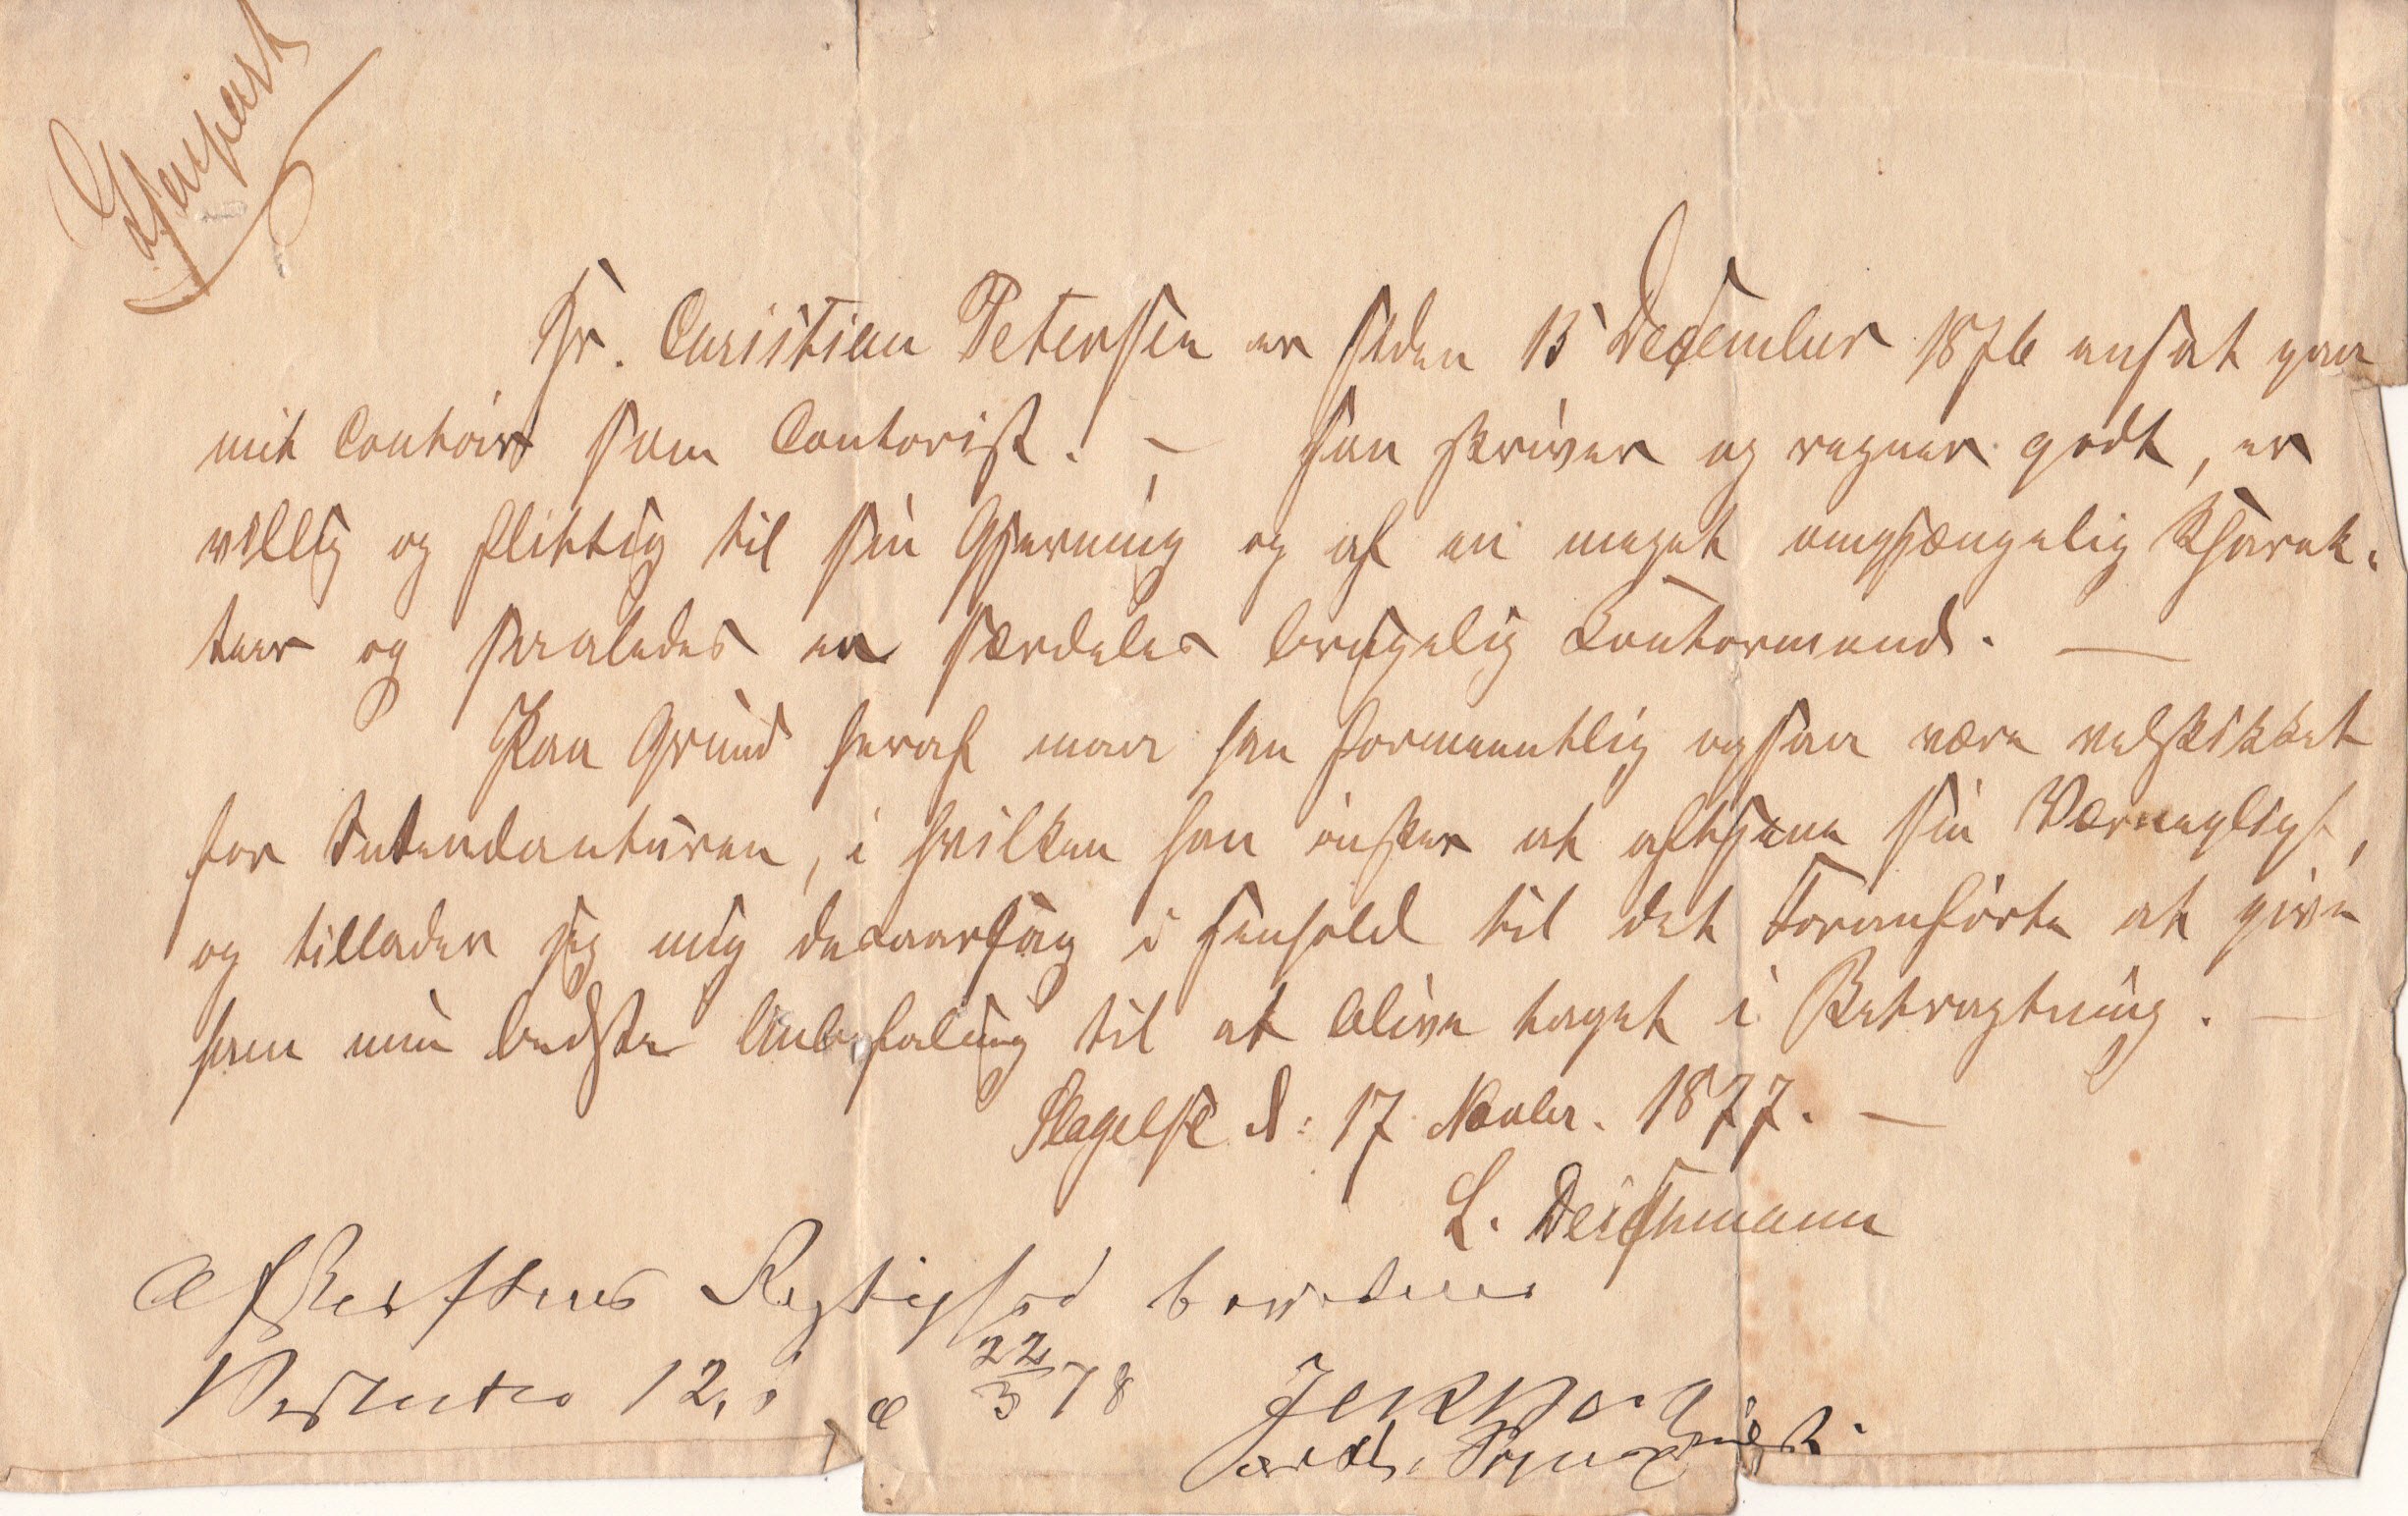 Gjenpart
Hr. Christian Petersen er siden 15 December 1876 ansat paa
mit Contoir som Contorist. — Han skriver og regner godt, er
villig og flittig til sin Gjerning og af en meget omgjængelig Kharak-
teer og saaledes en særdeles brugelig Kontormand. —
Paa Grund heraf maa han formeentlig ogsaa være velskikket
for Intendanturen, i hvilken han ønsker at aftjene sin Værnepligt,
og tillader jeg mig desaarsag i Henhold til det Foranførte at give
ham min bedste Anbefaling til at blive taget i Betragtning. —
Slagelse d: 17 Novbr. 1877. —
L. Deichmann
Afskriftens Rigtighed bevidnes
22/3 78